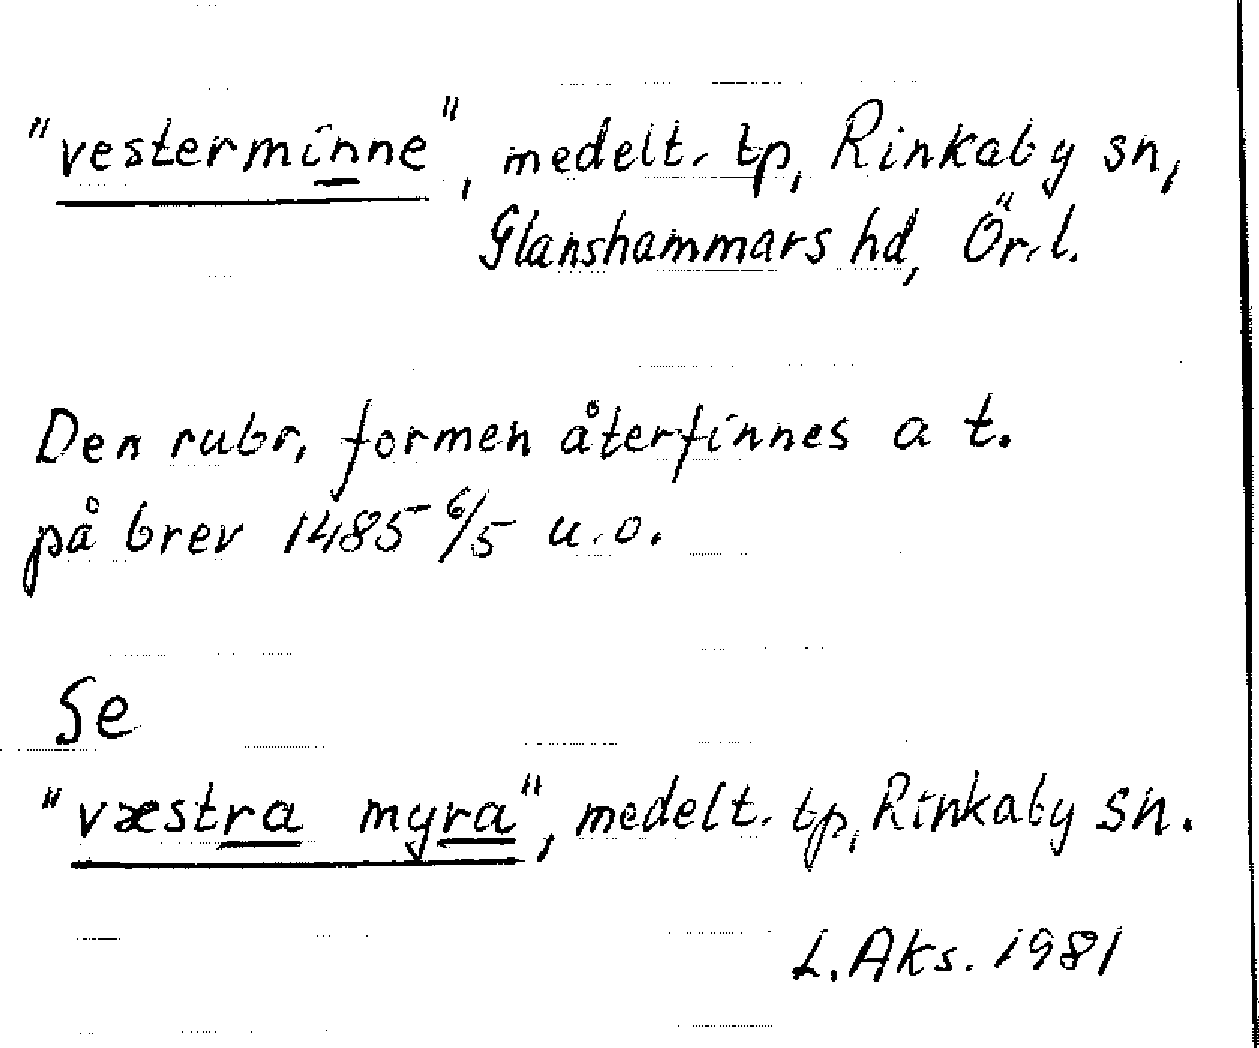 "vesterminne", medelt. tp, Rinkaby sn,
Glanshammars hd, Ör. l.
Den rubr. formen återfinnes a t.
på brev 1485 6/5 u.o.
Se
"væstra myra", medelt. tp, Rinkaby sn.
L. Aks. 1981